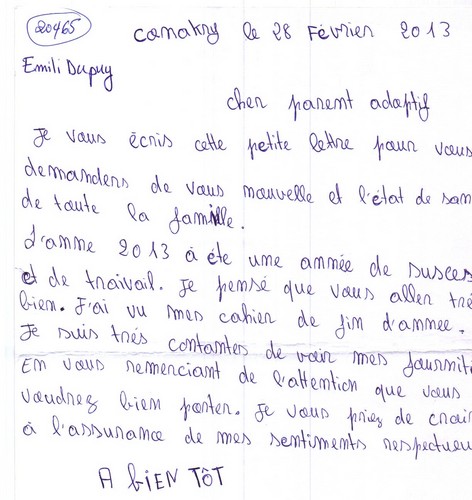 20465
Canakry le 28 Février 2013
Emili Dupuy
cher parent adoptif
Je vous écris cette petite lettre pour vous
demanders de vous nouvelle et l'état de san
de toute la famille.
L'anne 2013 à éte une année de susces
et de traivail. Je pensé que vous aller tré
bien. J'ai vu mes cahier de fin d'annee.
Je suis trés contantes de voir mes fourniti
En vous remerciant de l'attention que vous
voudrez bien porter. Je vous priez de croir
à l'assurance de mes sentiments respectueu
A BIEN TÔT